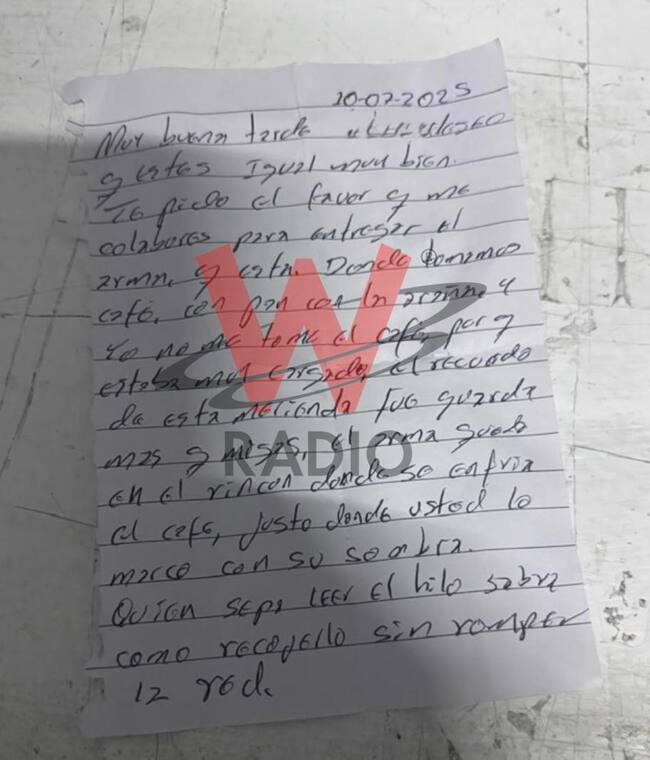 10-07-2025
Muy buena tarde
q estes Igual muy bien.
Te pido el favor q me
colabores para entregar el
arma, q esta. Donde tomamos
café, con pan con la araña, y
Yo no me tome el cafe, por q
estaba muy cargado, el recuerdo
de esta merienda fue guarda
mas q migas, el arma quedo
en el rincon donde se enfria
el cafe, justo donde usted lo
marco con su sombra.
Quien sepa LEER El hilo sabra
como recogello sin romper
la red.
W
RADIO